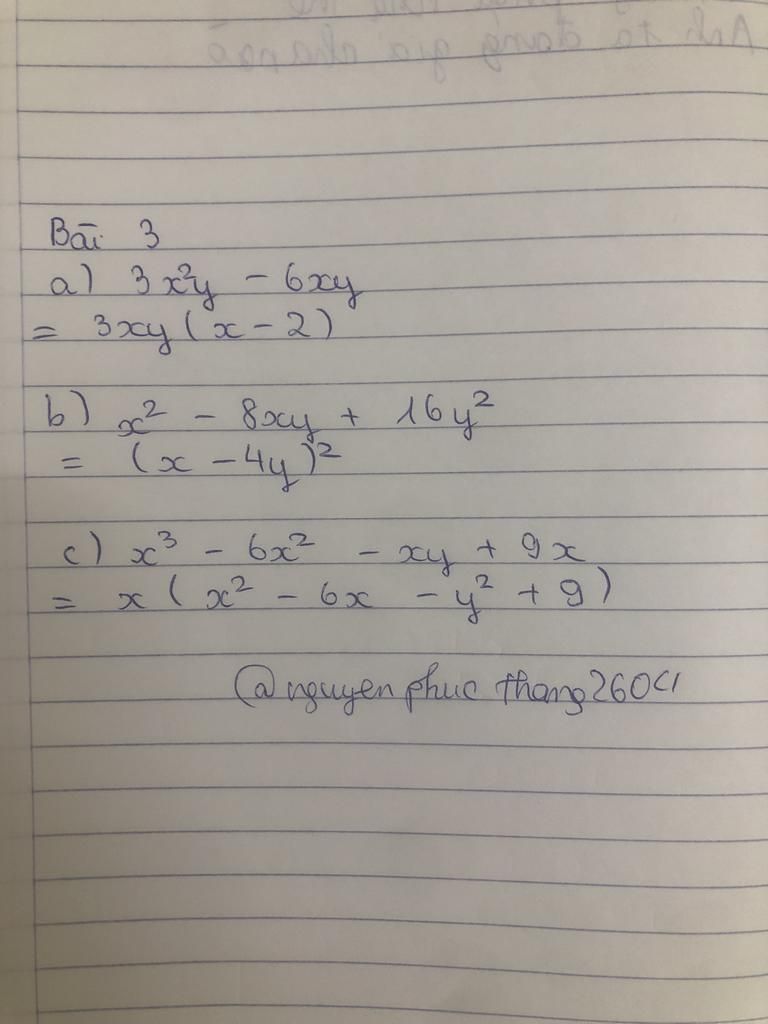 Bài 3
a) 3x²y - 6xy
= 3xy(x - 2)
b) x² - 8xy + 16y²
= (x - 4y)²
c) x³ - 6x² - xy + 9x
= x(x² - 6x - y² + 9)
@nguyenphucthang2604